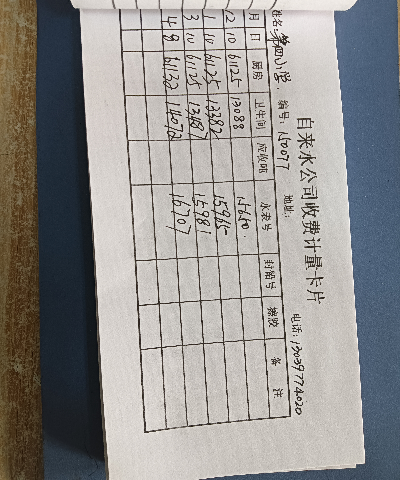 自来水公司收费计量卡片
姓名:第四小学. 编号:150077 地址: 电话:13039774020
月 日 厨房 卫生间 应收吨 水表号 封铅号 橡胶 备注
12 10 61125 13088 15650.
1 10 61125 13382 15965
3 10 61125 13487 15981
4 8 61132 14072 16707